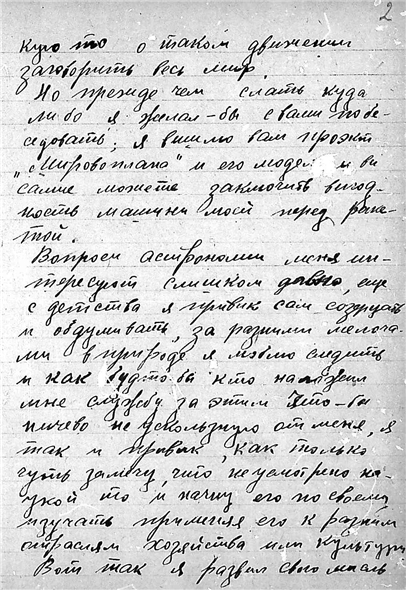 2
кую то о таком движении
заговорить весь мир.
Но прежде чем слать куда
либо я желал-бы с вами побе-
седовать; я вышлю вам проэкт
„Мировоплана" и его модел и вы
сами можете заключить выгод-
ность машины моей перед раке-
той.
Вопросы астрономии меня ин-
тересуют слишком давно, еще
с детства я привик сам созерцать
и обдумивать, за разними мелоча-
ми в природе я люблю следить
и как будто бы кто наложил
мне службу за этим что-бы
ничево не ускользнуло от меня, я
так и привик, как только
чуть замечу, что не усмотрено на-
укой то и начну его по своему
изучать применяя его к разним
отраслям хозяйства или культуры
Вот так я развил свою мисль